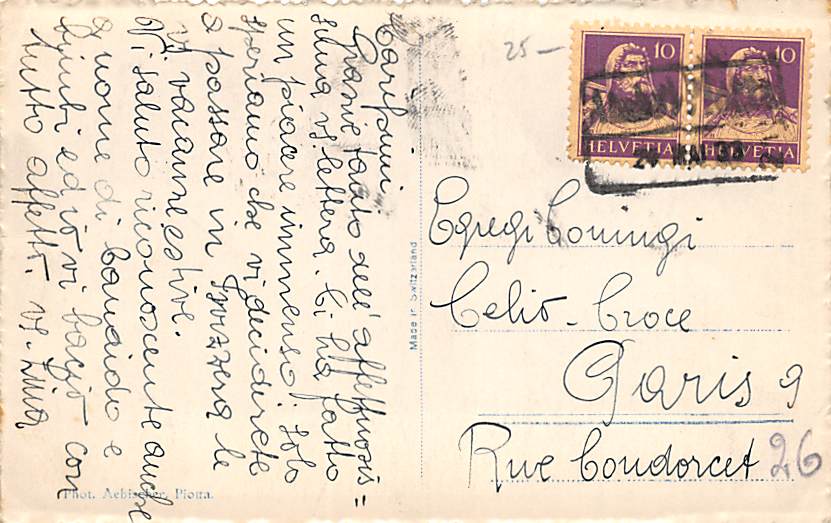 Carissimi
Grazie tanto dell' affettuosis=
sima vs. lettera. Ci ha fatto
un piacere immenso! Solo
speriamo che vi deciderete
a passare in Isvizzera le
vs vacanze estive.
Vi saluto riconoscente anche
a nome di
e
bimbi ed io vi bacio con
tutto affetto. vs. Lina
25 —
10 10
HELVETIA HELVETIA
Egregi Coniugi
Celio - Croce
Paris 9
Rue Condorcet 26
Made in Switzerland
Phot. Aebischer, Piotta.